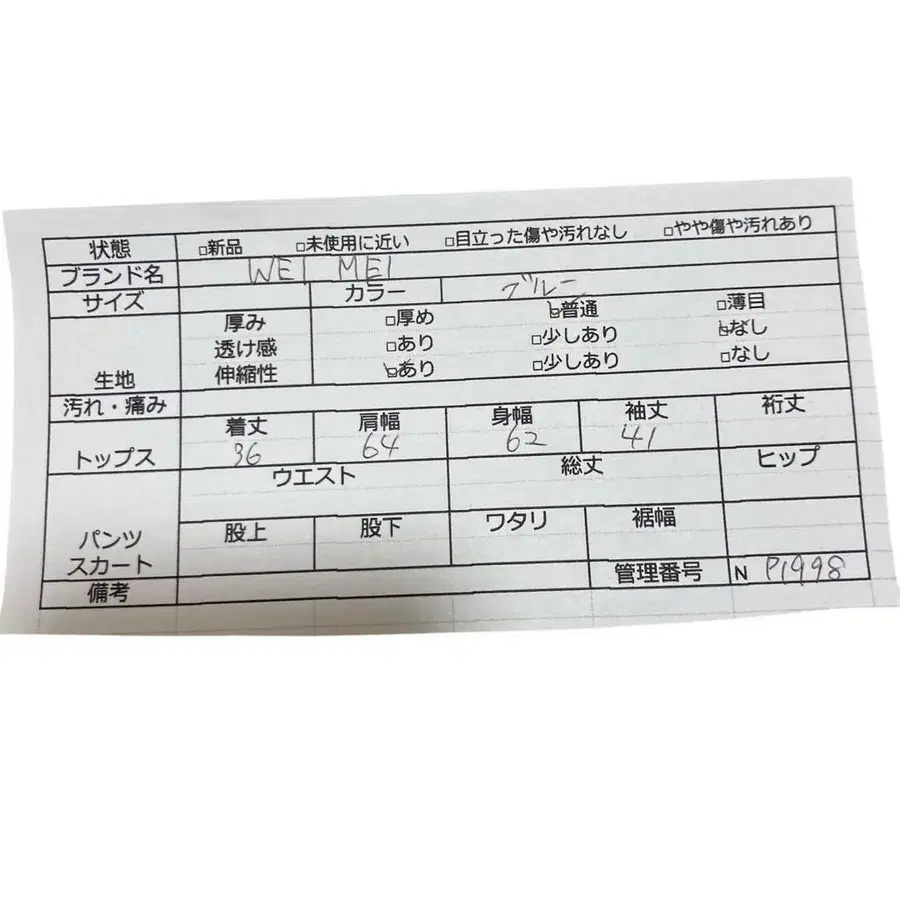 状態 □新品 □未使用に近い □目立った傷や汚れなし □やや傷や汚れあり
ブランド名 WEI MEI
サイズ カラー ブルー
厚み □厚め □普通 □薄目
透け感 □あり □少しあり □なし
生地 伸縮性 □あり □少しあり □なし
汚れ・痛み
着丈 肩幅 身幅 袖丈 裄丈
トップス 36 64 62 41
ウエスト 総丈 ヒップ
股上 股下 ワタリ 裾幅
パンツ
スカート
備考 管理番号 N P1998